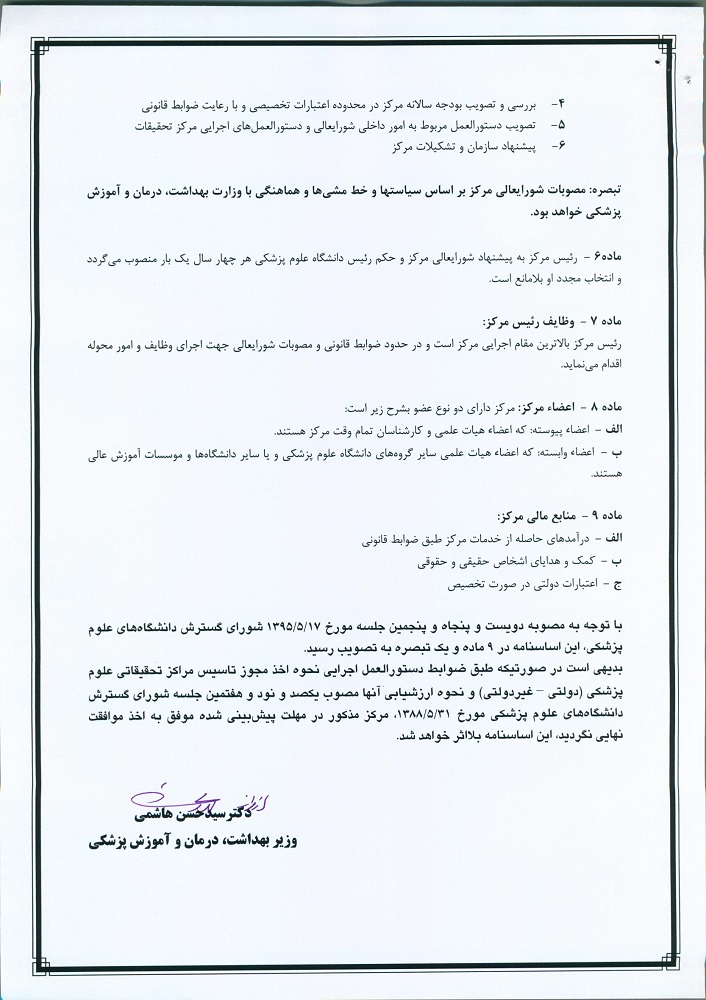 ۴- بررسی و تصویب بودجه سالانه مرکز در محدوده اعتبارات تخصیصی و با رعایت ضوابط قانونی
۵- تصویب دستورالعمل مربوط به امور داخلی شورایعالی و دستورالعمل‌های اجرایی مرکز تحقیقات
۶- پیشنهاد سازمان و تشکیلات مرکز
تبصره: مصوبات شورایعالی مرکز بر اساس سیاستها و خط مشی‌ها و هماهنگی با وزارت بهداشت، درمان و آموزش
پزشکی خواهد بود.
ماده۶ - رئیس مرکز به پیشنهاد شورایعالی مرکز و حکم رئیس دانشگاه علوم پزشکی هر چهار سال یک بار منصوب می‌گردد
و انتخاب مجدد او بلامانع است.
ماده ۷ - وظایف رئیس مرکز:
رئیس مرکز بالاترین مقام اجرایی مرکز است و در حدود ضوابط قانونی و مصوبات شورایعالی جهت اجرای وظایف و امور محوله
اقدام می‌نماید.
ماده ۸ - اعضاء مرکز: مرکز دارای دو نوع عضو بشرح زیر است:
الف - اعضاء پیوسته: که اعضاء هیات علمی و کارشناسان تمام وقت مرکز هستند.
ب - اعضاء وابسته: که اعضاء هیات علمی سایر گروه‌های دانشگاه علوم پزشکی و یا سایر دانشگاه‌ها و موسسات آموزش عالی
هستند.
ماده ۹ - منابع مالی مرکز:
الف - درآمدهای حاصله از خدمات مرکز طبق ضوابط قانونی
ب - کمک و هدایای اشخاص حقیقی و حقوقی
ج - اعتبارات دولتی در صورت تخصیص
با توجه به مصوبه دویست و پنجاه و پنجمین جلسه مورخ ۱۳۹۵/۵/۱۷ شورای گسترش دانشگاه‌های علوم
پزشکی، این اساسنامه در ۹ ماده و یک تبصره به تصویب رسید.
بدیهی است در صورتیکه طبق ضوابط دستورالعمل اجرایی نحوه اخذ مجوز تاسیس مراکز تحقیقاتی علوم
پزشکی (دولتی - غیردولتی) و نحوه ارزشیابی آنها مصوب یکصد و نود و هفتمین جلسه شورای گسترش
دانشگاه‌های علوم پزشکی مورخ ۱۳۸۸/۵/۳۱، مرکز مذکور در مهلت پیش‌بینی شده موفق به اخذ موافقت
نهایی نگردید، این اساسنامه بلااثر خواهد شد.
دکترسیدحسن هاشمی
وزیر بهداشت، درمان و آموزش پزشکی